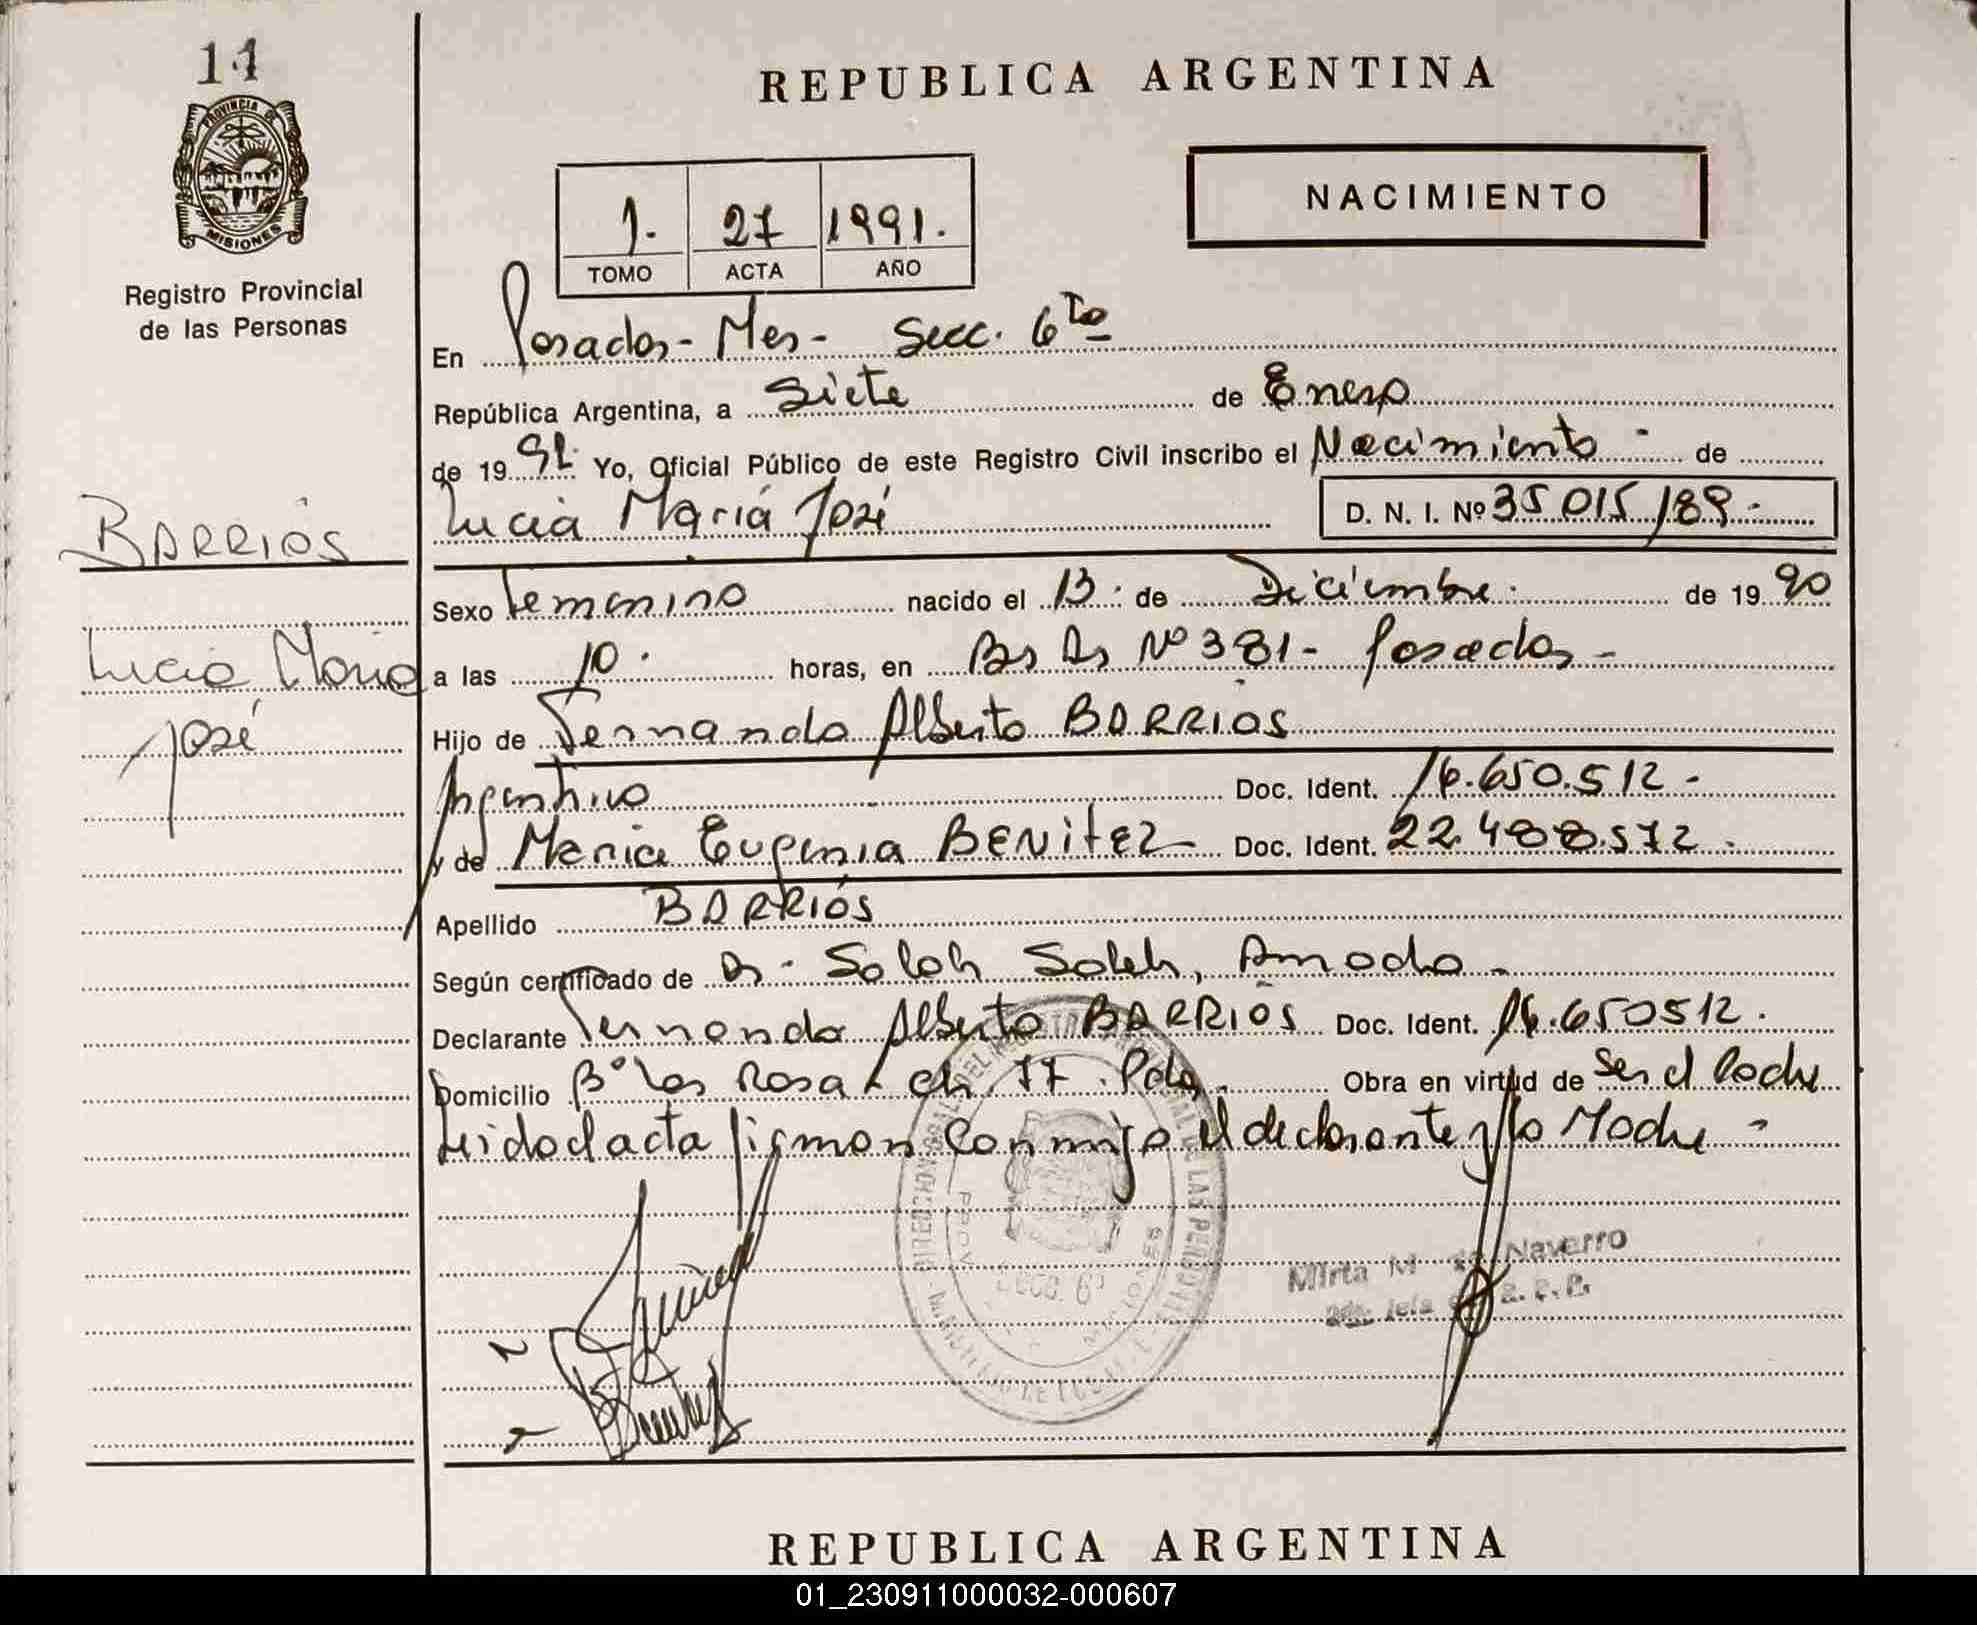 11
REPUBLICA ARGENTINA
PROVINCIA DE
MISIONES
Registro Provincial
de las Personas
1. 27 1991.
TOMO ACTA AÑO
NACIMIENTO
En Posadas - Mes - Secc. 6to
República Argentina, a Siete de Enero
de 1991. Yo, Oficial Público de este Registro Civil inscribo el Nacimiento - de
Lucia María José D. N. I. Nº 35 015 189 -
BARRIOS
Sexo Femenino nacido el 13. de Diciembre. de 1990
Lucia Maria
José
a las 10. horas, en Bs As Nº 381 - Posadas -
Hijo de Fernando Alberto BARRIOS
Argentino Doc. Ident. 16.650.512 -
y de Maria Eugenia BENITEZ - Doc. Ident. 22.488.572 -
Apellido BARRIOS
Según certificado de Dr. Saleh Saleh, Amado -
Declarante Fernando Alberto BARRIOS Doc. Ident. 16.650512.
Domicilio Bº Las Rosas ch. 77. Pdas. Obra en virtud de Ser el Padre
Leido el acta firman conmigo el declarante y la Madre -
Mirta M. de Navarro
SECC. 6ª
REPUBLICA ARGENTINA
01_230911000032-000607